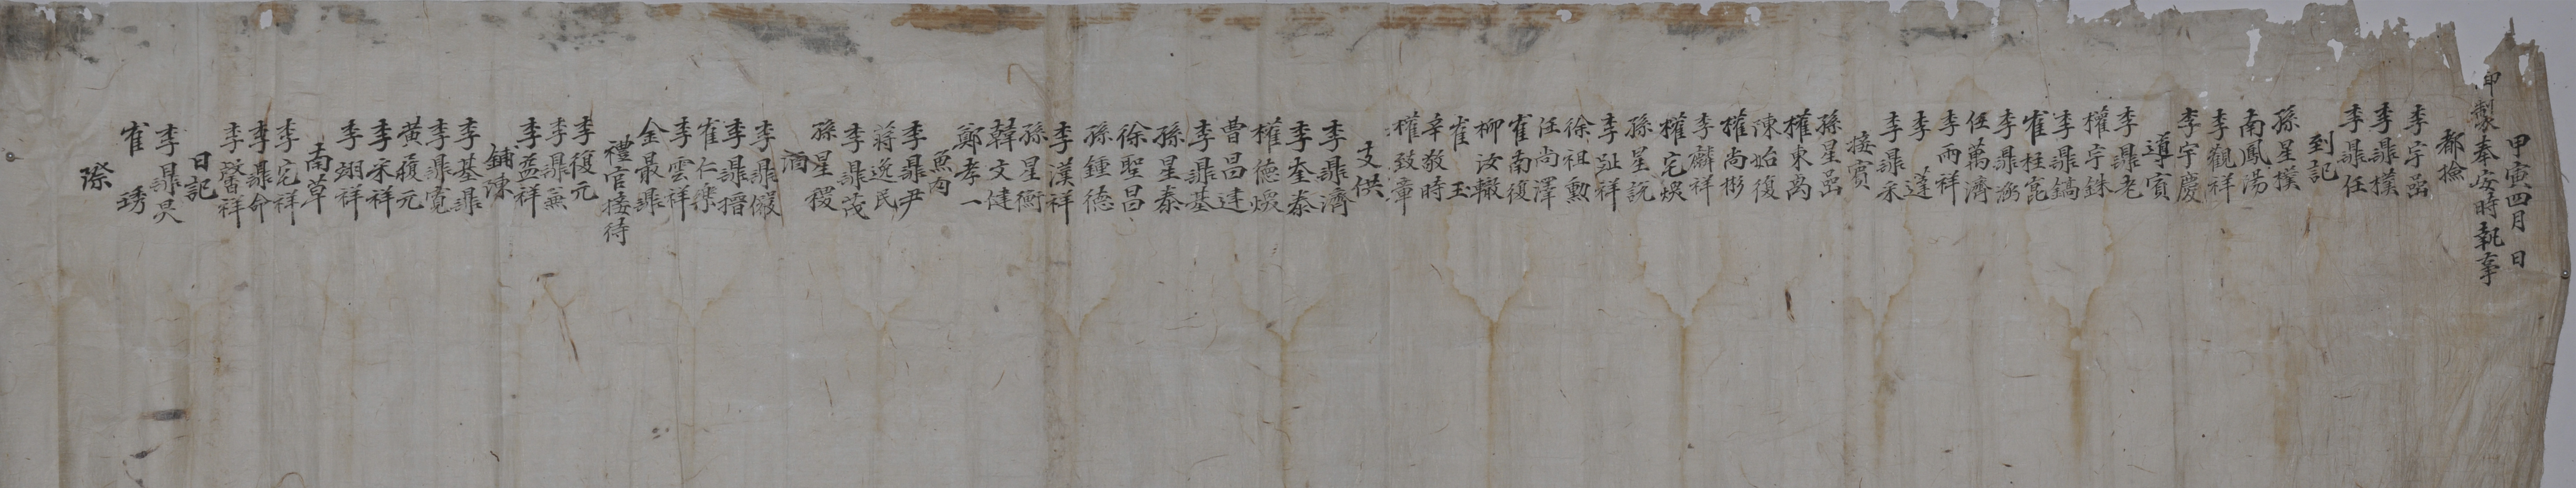 甲寅四月 日
御製奉安時執事
都檢
李宇嵒
李鼎樸
李鼎任
到記
孫星模
南鳳湯
李觀祥
李宇慶
導賓
李鼎老
權宇銖
李鼎鎬
崔柱
李鼎
任萬濟
李雨祥
李蓬
李鼎采
接賓
孫星嵒
權東萬
陳始復
權尚彬
李麟祥
權宅煥
孫星說
李祉祥
徐祖勳
任尚澤
崔南復
柳汝轍
崔玉
辛敎時
權致章
支供
李鼎濟
李奎泰
權德煥
曹昌建
李鼎基
孫星泰
徐聖昌
孫鍾德
李漢祥
孫星衡
韓文健
鄭孝一
魚肉
李鼎尹
蔣逸民
李鼎茂
孫星稷
酒
李鼎儼
李鼎搢
崔仁樂
李雲祥
金最鼎
禮官接待
李復元
李鼎薰
李益祥
鋪陳
李基鼎
李鼎寬
黃履元
李采祥
李翊祥
南草
李宅祥
李鼎命
李發祥
日記
李鼎昊
崔琇
際